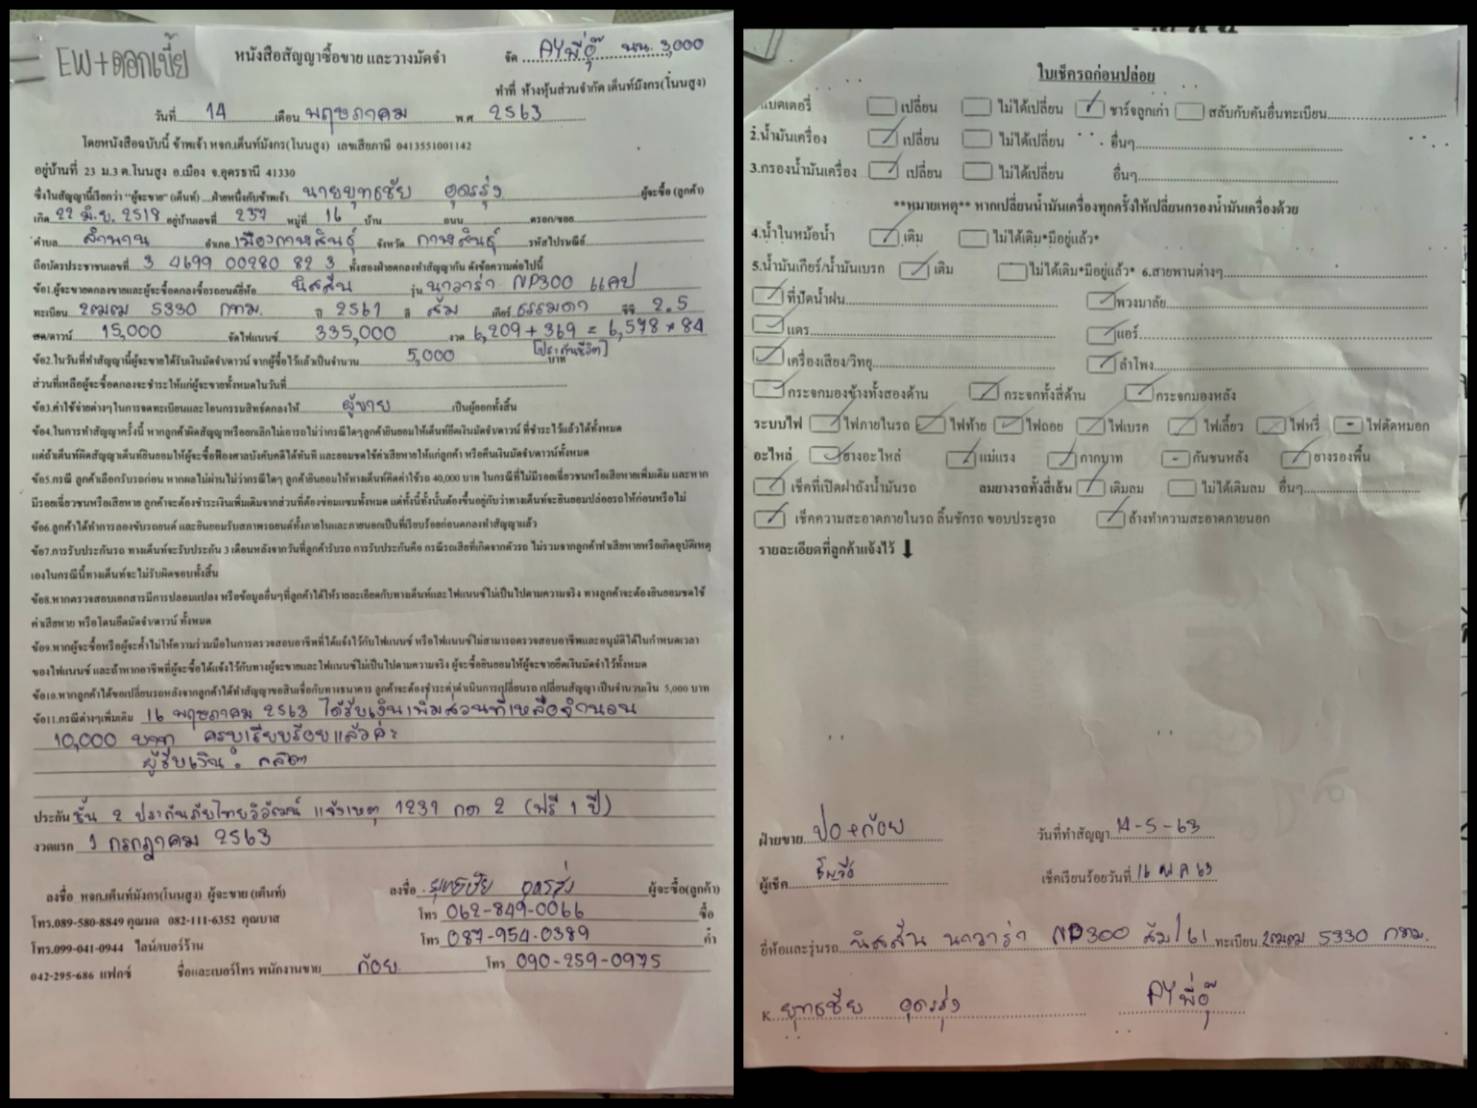 EW+ดอกเบี้ย
หนังสือสัญญาซื้อขาย และวางมัดจำ
จัด AYพี่อุ๊ นน. 3,000
ทำที่ ห้างหุ้นส่วนจำกัด เต็นท์มังกร(โนนสูง)
วันที่ 14 เดือน พฤษภาคม พ.ศ. 2563
โดยหนังสือฉบับนี้ ข้าพเจ้า หจก.เต็นท์มังกร(โนนสูง) เลขเสียภาษี 0413551001142
อยู่บ้านที่ 23 ม.3 ต.โนนสูง อ.เมือง จ.อุดรธานี 41330
ซึ่งในสัญญานี้เรียกว่า "ผู้จะขาย" (เต็นท์) ฝ่ายหนึ่งกับข้าพเจ้า นายยุทธชัย อุดรรุ่ง ผู้จะซื้อ (ลูกค้า)
เกิด 22 มิ.ย. 2518 อยู่บ้านเลขที่ 237 หมู่ที่ 16 บ้าน ถนน ตรอก/ซอย
ตำบล ลำพาน อำเภอ เมืองกาฬสินธุ์ จังหวัด กาฬสินธุ์ รหัสไปรษณีย์
ถือบัตรประชาชนเลขที่ 3 4699 00280 82 3 ทั้งสองฝ่ายตกลงทำสัญญากัน ดังข้อความต่อไปนี้
ข้อ1.ผู้จะขายตกลงขายและผู้จะซื้อตกลงซื้อรถยนต์ยี่ห้อ นิสสัน รุ่น นาวาร่า NP300 แคป
ทะเบียน 2ฒฒ 5330 กทม. ปี 2561 สี ส้ม เกียร์ ธรรมดา ซีซี 2.5
สด/ดาวน์ 15,000 จัดไฟแนนซ์ 335,000 งวด 6,209 + 369 = 6,578 * 84
[ประกันชีวิต]
ข้อ2.ในวันที่ทำสัญญานี้ผู้จะขายได้รับเงินมัดจำ/ดาวน์ จากผู้ซื้อไว้แล้วเป็นจำนวน 5,000 บาท
ส่วนที่เหลือผู้จะซื้อตกลงจะชำระให้แก่ผู้จะขายทั้งหมดในวันที่
ข้อ3.ค่าใช้จ่ายต่างๆในการจดทะเบียนและโอนกรรมสิทธิ์ตกลงให้ ผู้ขาย เป็นผู้ออกทั้งสิ้น
ข้อ4.ในการทำสัญญาครั้งนี้ หากลูกค้าผิดสัญญาหรือยกเลิกไม่เอารถไม่ว่ากรณีใดๆลูกค้ายินยอมให้เต็นท์ยึดเงินมัดจำ/ดาวน์ ที่ชำระไว้แล้วได้ทั้งหมด
แต่ถ้าเต็นท์ผิดสัญญาเต็นท์ยินยอมให้ผู้จะซื้อฟ้องศาลบังคับคดีได้ทันที และยอมชดใช้ค่าเสียหายให้แก่ลูกค้า หรือคืนเงินมัดจำ/ดาวน์ทั้งหมด
ข้อ5.กรณี ลูกค้าเลือกรับรถก่อน หากผลไม่ผ่านไม่ว่ากรณีใดๆ ลูกค้ายินยอมให้ทางเต็นท์คิดค่าใช้รถ 40,000 บาท ในกรณีที่ไม่มีรอยเฉี่ยวชนหรือเสียหายเพิ่มเติม และหาก
มีรอยเฉี่ยวชนหรือเสียหาย ลูกค้าจะต้องชำระเงินเพิ่มเติมจากส่วนที่ต้องซ่อมแซมทั้งหมด แต่ทั้งนี้ทั้งนั้นต้องขึ้นอยู่กับว่าทางเต็นท์จะยินยอมปล่อยรถให้ก่อนหรือไม่
ข้อ6.ลูกค้าได้ทำการลองขับรถยนต์ และยินยอมรับสภาพรถยนต์ทั้งภายในและภายนอกเป็นที่เรียบร้อยก่อนตกลงทำสัญญาแล้ว
ข้อ7.การรับประกันรถ ทางเต็นท์จะรับประกัน 3 เดือนหลังจากวันที่ลูกค้ารับรถ การรับประกันคือ กรณีรถเสียที่เกิดจากตัวรถ ไม่รวมจากลูกค้าทำเสียหายหรือเกิดอุบัติเหตุ
เองในกรณีนี้ทางเต็นท์จะไม่รับผิดชอบทั้งสิ้น
ข้อ8.หากตรวจสอบเอกสารมีการปลอมแปลง หรือข้อมูลอื่นๆที่ลูกค้าได้ให้รายละเอียดกับทางเต็นท์และไฟแนนซ์ไม่เป็นไปตามความจริง ทางลูกค้าจะต้องยินยอมชดใช้
ค่าเสียหาย หรือโดนยึดมัดจำ/ดาวน์ ทั้งหมด
ข้อ9.หากผู้จะซื้อหรือผู้จะค้ำไม่ให้ความร่วมมือในการตรวจสอบอาชีพที่ได้แจ้งไว้กับไฟแนนซ์ หรือไฟแนนซ์ไม่สามารถตรวจสอบอาชีพและอนุมัติได้ในกำหนดเวลา
ของไฟแนนซ์ และถ้าหากอาชีพที่ผู้จะซื้อได้แจ้งไว้กับทางผู้จะขายและไฟแนนซ์ไม่เป็นไปตามความจริง ผู้จะซื้อยินยอมให้ผู้จะขายยึดเงินมัดจำไว้ทั้งหมด
ข้อ10.หากลูกค้าได้ขอเปลี่ยนรถหลังจากลูกค้าได้ทำสัญญาขอสินเชื่อกับทางธนาคาร ลูกค้าจะต้องชำระค่าดำเนินการเปลี่ยนรถ เปลี่ยนสัญญา เป็นจำนวนเงิน 5,000 บาท
ข้อ11.กรณีต่างๆเพิ่มเติม 16 พฤษภาคม 2563 ได้รับเงินเพิ่มส่วนที่เหลือจำนวน
10,000 บาท ครบเรียบร้อยแล้วค่ะ
ผู้รับเงิน :
ประกัน ชั้น 2 ประกันภัยไทยวิวัฒน์ แจ้งเหตุ 1231 กด 2 (ฟรี 1 ปี)
งวดแรก 1 กรกฎาคม 2563
ลงชื่อ หจก.เต็นท์มังกร(โนนสูง) ผู้จะขาย (เต็นท์) ลงชื่อ ยุทธชัย อุดรรุ่ง ผู้จะซื้อ(ลูกค้า)
โทร.089-580-8849 คุณมด 082-111-6352 คุณบาส โทร 062-849-0066 ซื้อ
โทร.099-041-0944 ไลน์/เบอร์ร้าน โทร 087-954-0389 ค้ำ
042-295-686 แฟกซ์ ชื่อและเบอร์โทร พนักงานขาย ก้อย โทร 090-259-0975
ใบเช็ครถก่อนปล่อย
แบตเตอรี่ เปลี่ยน ไม่ได้เปลี่ยน ชาร์จลูกเก่า สลับกับคันอื่นทะเบียน
2.น้ำมันเครื่อง เปลี่ยน ไม่ได้เปลี่ยน อื่นๆ
3.กรองน้ำมันเครื่อง เปลี่ยน ไม่ได้เปลี่ยน อื่นๆ
**หมายเหตุ** หากเปลี่ยนน้ำมันเครื่องทุกครั้งให้เปลี่ยนกรองน้ำมันเครื่องด้วย
4.น้ำในหม้อน้ำ เติม ไม่ได้เติม*มีอยู่แล้ว*
5.น้ำมันเกียร์/น้ำมันเบรก เติม ไม่ได้เติม*มีอยู่แล้ว* 6.สายพานต่างๆ
ที่ปัดน้ำฝน พวงมาลัย
แตร แอร์
เครื่องเสียง/วิทยุ ลำโพง
กระจกมองข้างทั้งสองด้าน กระจกทั้งสี่ด้าน กระจกมองหลัง
ระบบไฟ ไฟภายในรถ ไฟท้าย ไฟถอย ไฟเบรค ไฟเลี้ยว ไฟหรี่ ไฟตัดหมอก
อะไหล่ ยางอะไหล่ แม่แรง กากบาท กันชนหลัง ยางรองพื้น
เช็คที่เปิดฝาถังน้ำมันรถ ลมยางรถทั้งสี่เส้น เติมลม ไม่ได้เติมลม อื่นๆ
เช็คความสะอาดภายในรถ ลิ้นชักรถ ขอบประตูรถ ล้างทำความสะอาดภายนอก
รายละเอียดที่ลูกค้าแจ้งไว้ ⬇
ฝ่ายขาย ปอ+ก้อย วันที่ทำสัญญา 14-5-63
ผู้เช็ค เช็คเรียบร้อยวันที่ 16 พ.ค 63
ยี่ห้อและรุ่นรถ นิสสัน นาวาร่า NP300 ส้ม/61 ทะเบียน 2ฒฒ 5330 กทม.
K. ยุทธชัย อุดรรุ่ง AYพี่อุ๊